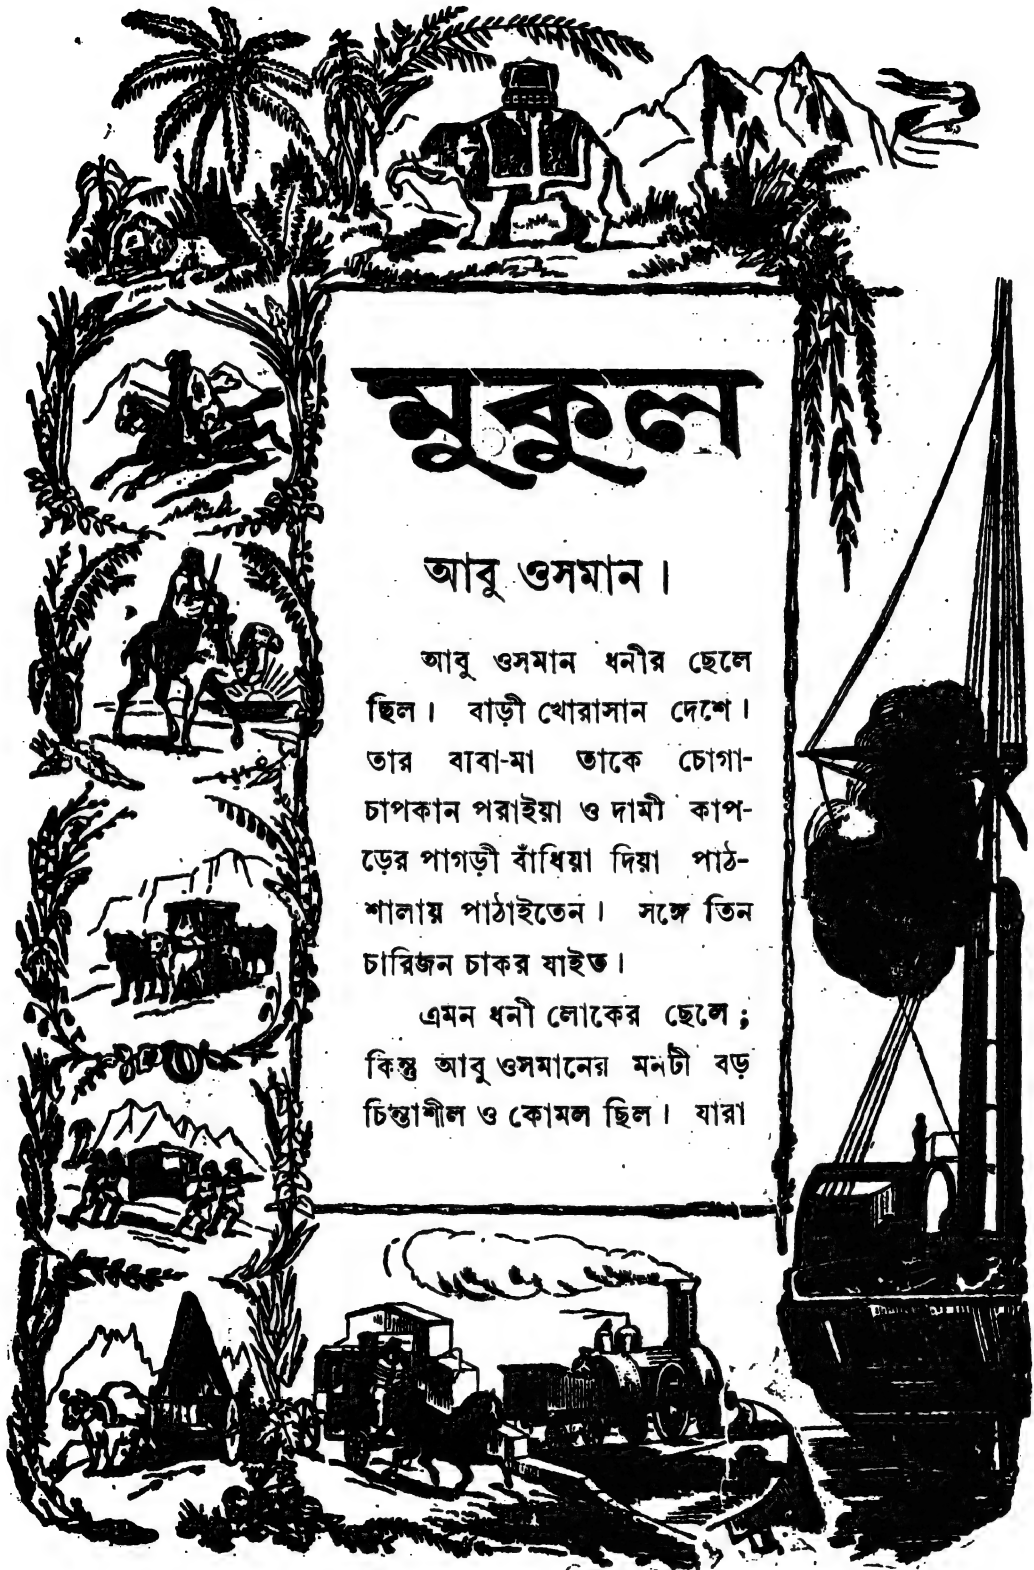 মুকুল
আবু ওসমান।
আবু ওসমান ধনীর ছেলে
ছিল। বাড়ী খোরাসান দেশে।
তার বাবা-মা তাকে চোগা-
চাপকান পরাইয়া ও দামী কাপ-
ড়ের পাগড়ী বাঁধিয়া দিয়া পাঠ-
শালায় পাঠাইতেন। সঙ্গে তিন
চারিজন চাকর যাইত।
এমন ধনী লোকের ছেলে;
কিন্তু আবু ওসমানের মনটী বড়
চিন্তাশীল ও কোমল ছিল। যারা